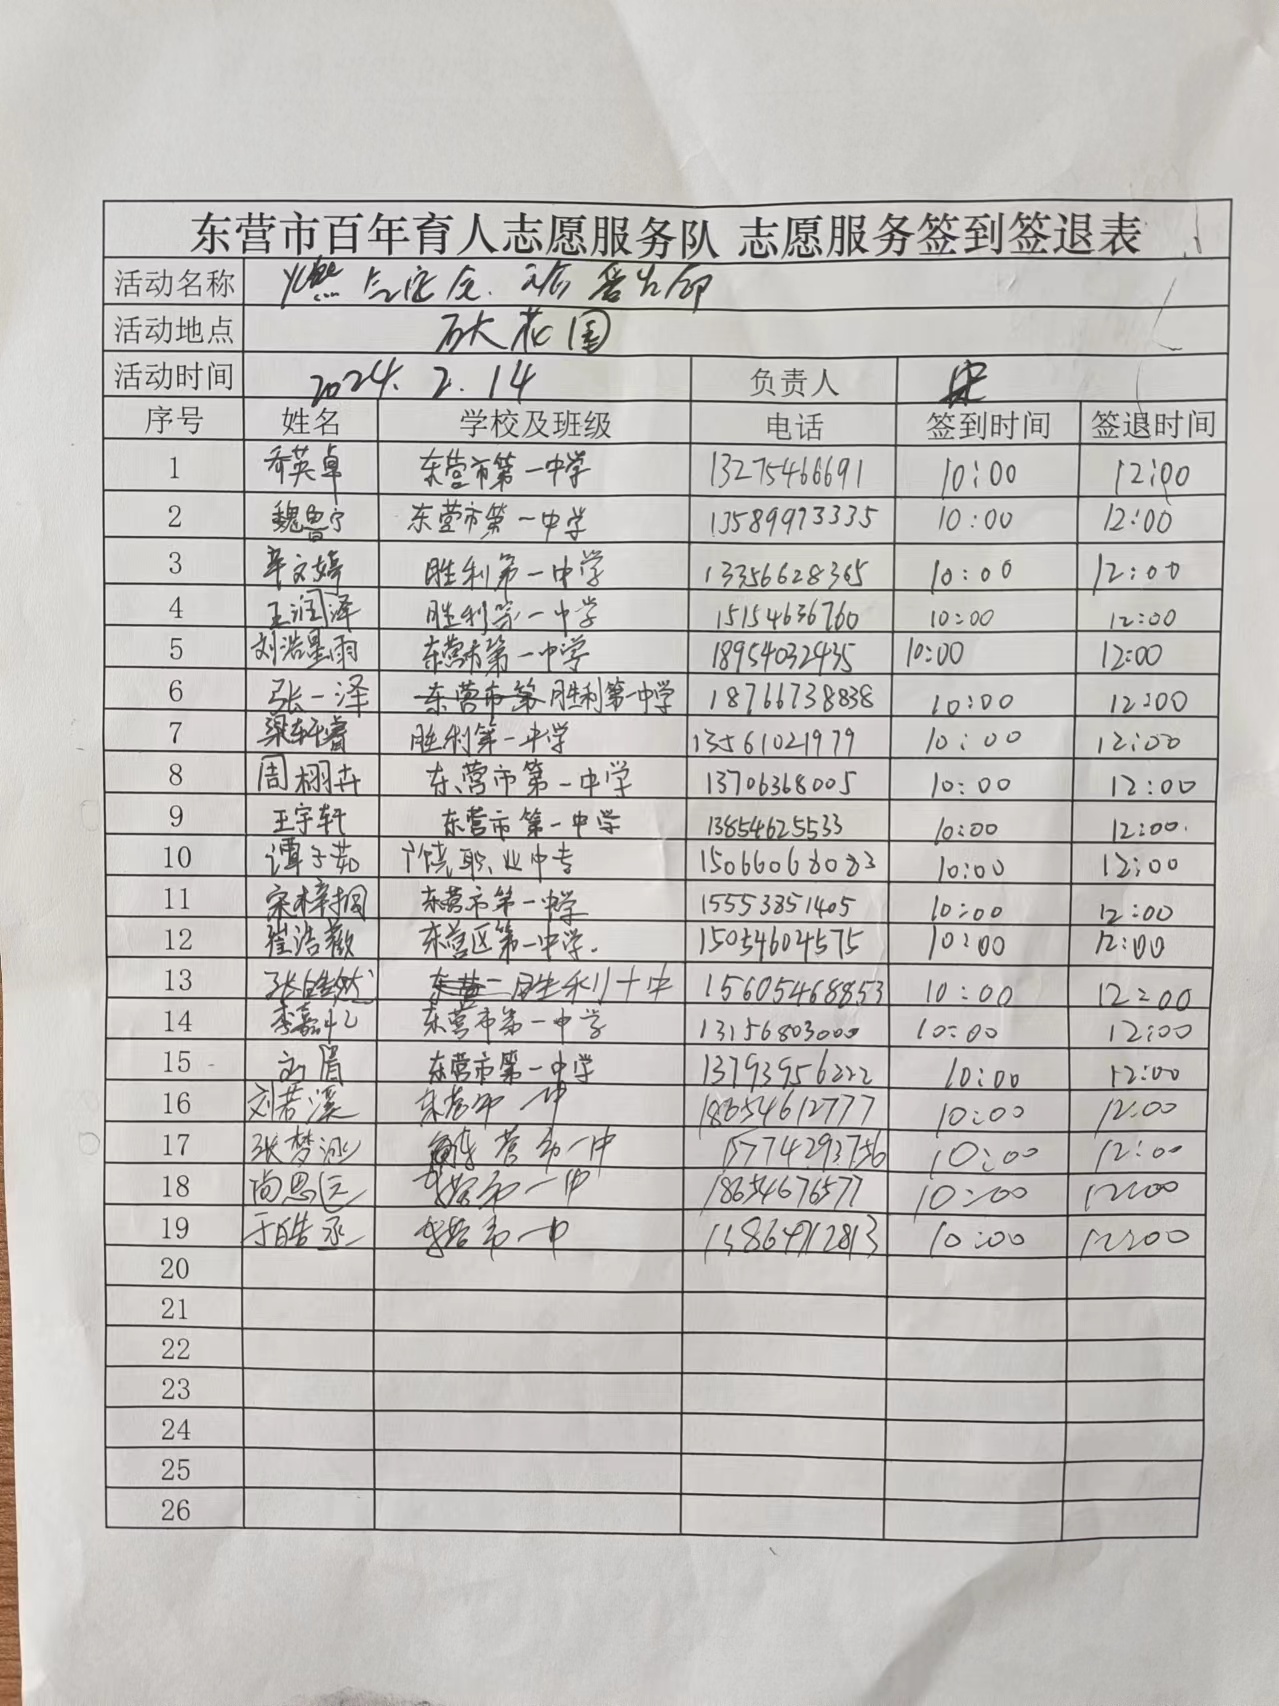 东营市百年育人志愿服务队 志愿服务签到签退表
活动名称 燃
活动地点 石大花园
活动时间 2024.2.14 负责人 宋
序号 姓名 学校及班级 电话 签到时间 签退时间
1 乔英卓 东营市第一中学 13275466691 10:00 12:00
2 魏鲁宁 东营市第一中学 13589973335 10:00 12:00
3 辛文婷 胜利第一中学 13356628365 10:00 12:00
4 王润泽 胜利第一中学 15154636760 10:00 12:00
5 刘浩星雨 东营市第一中学 18954032435 10:00 12:00
6 张一泽 东营市第胜利第一中学 18766738838 10:00 12:00
7 梁轩睿 胜利第一中学 13561021979 10:00 12:00
8 周栩卉 东营市第一中学 13706368005 10:00 12:00
9 王宇轩 东营市第一中学 13854625533 10:00 12:00.
10 谭子茹 广饶职业中专 15066068083 10:00 12:00
11 宋梓桐 东营市第一中学 15553851405 10:00 12:00
12 崔浩歌 东营区第一中学. 15054604575 10:00 12:00
13 张皓然 东营二胜利十中 15605468853 10:00 12:00
14 李嘉忆 东营市第一中学 13156803000 10:00 12:00
15 刘眉 东营市第一中学 13793956222 10:00 12:00
16 刘若溪 东营市一中 18654612777 10:00 12:00
17 张梦泳 东营市一中 15774293756 10:00 12:00
18 尚思远 东营市一中 18654676577 10:00 12:00
19 于皓丞 东营市一中 13864712813 10:00 12:00
20
21
22
23
24
25
26